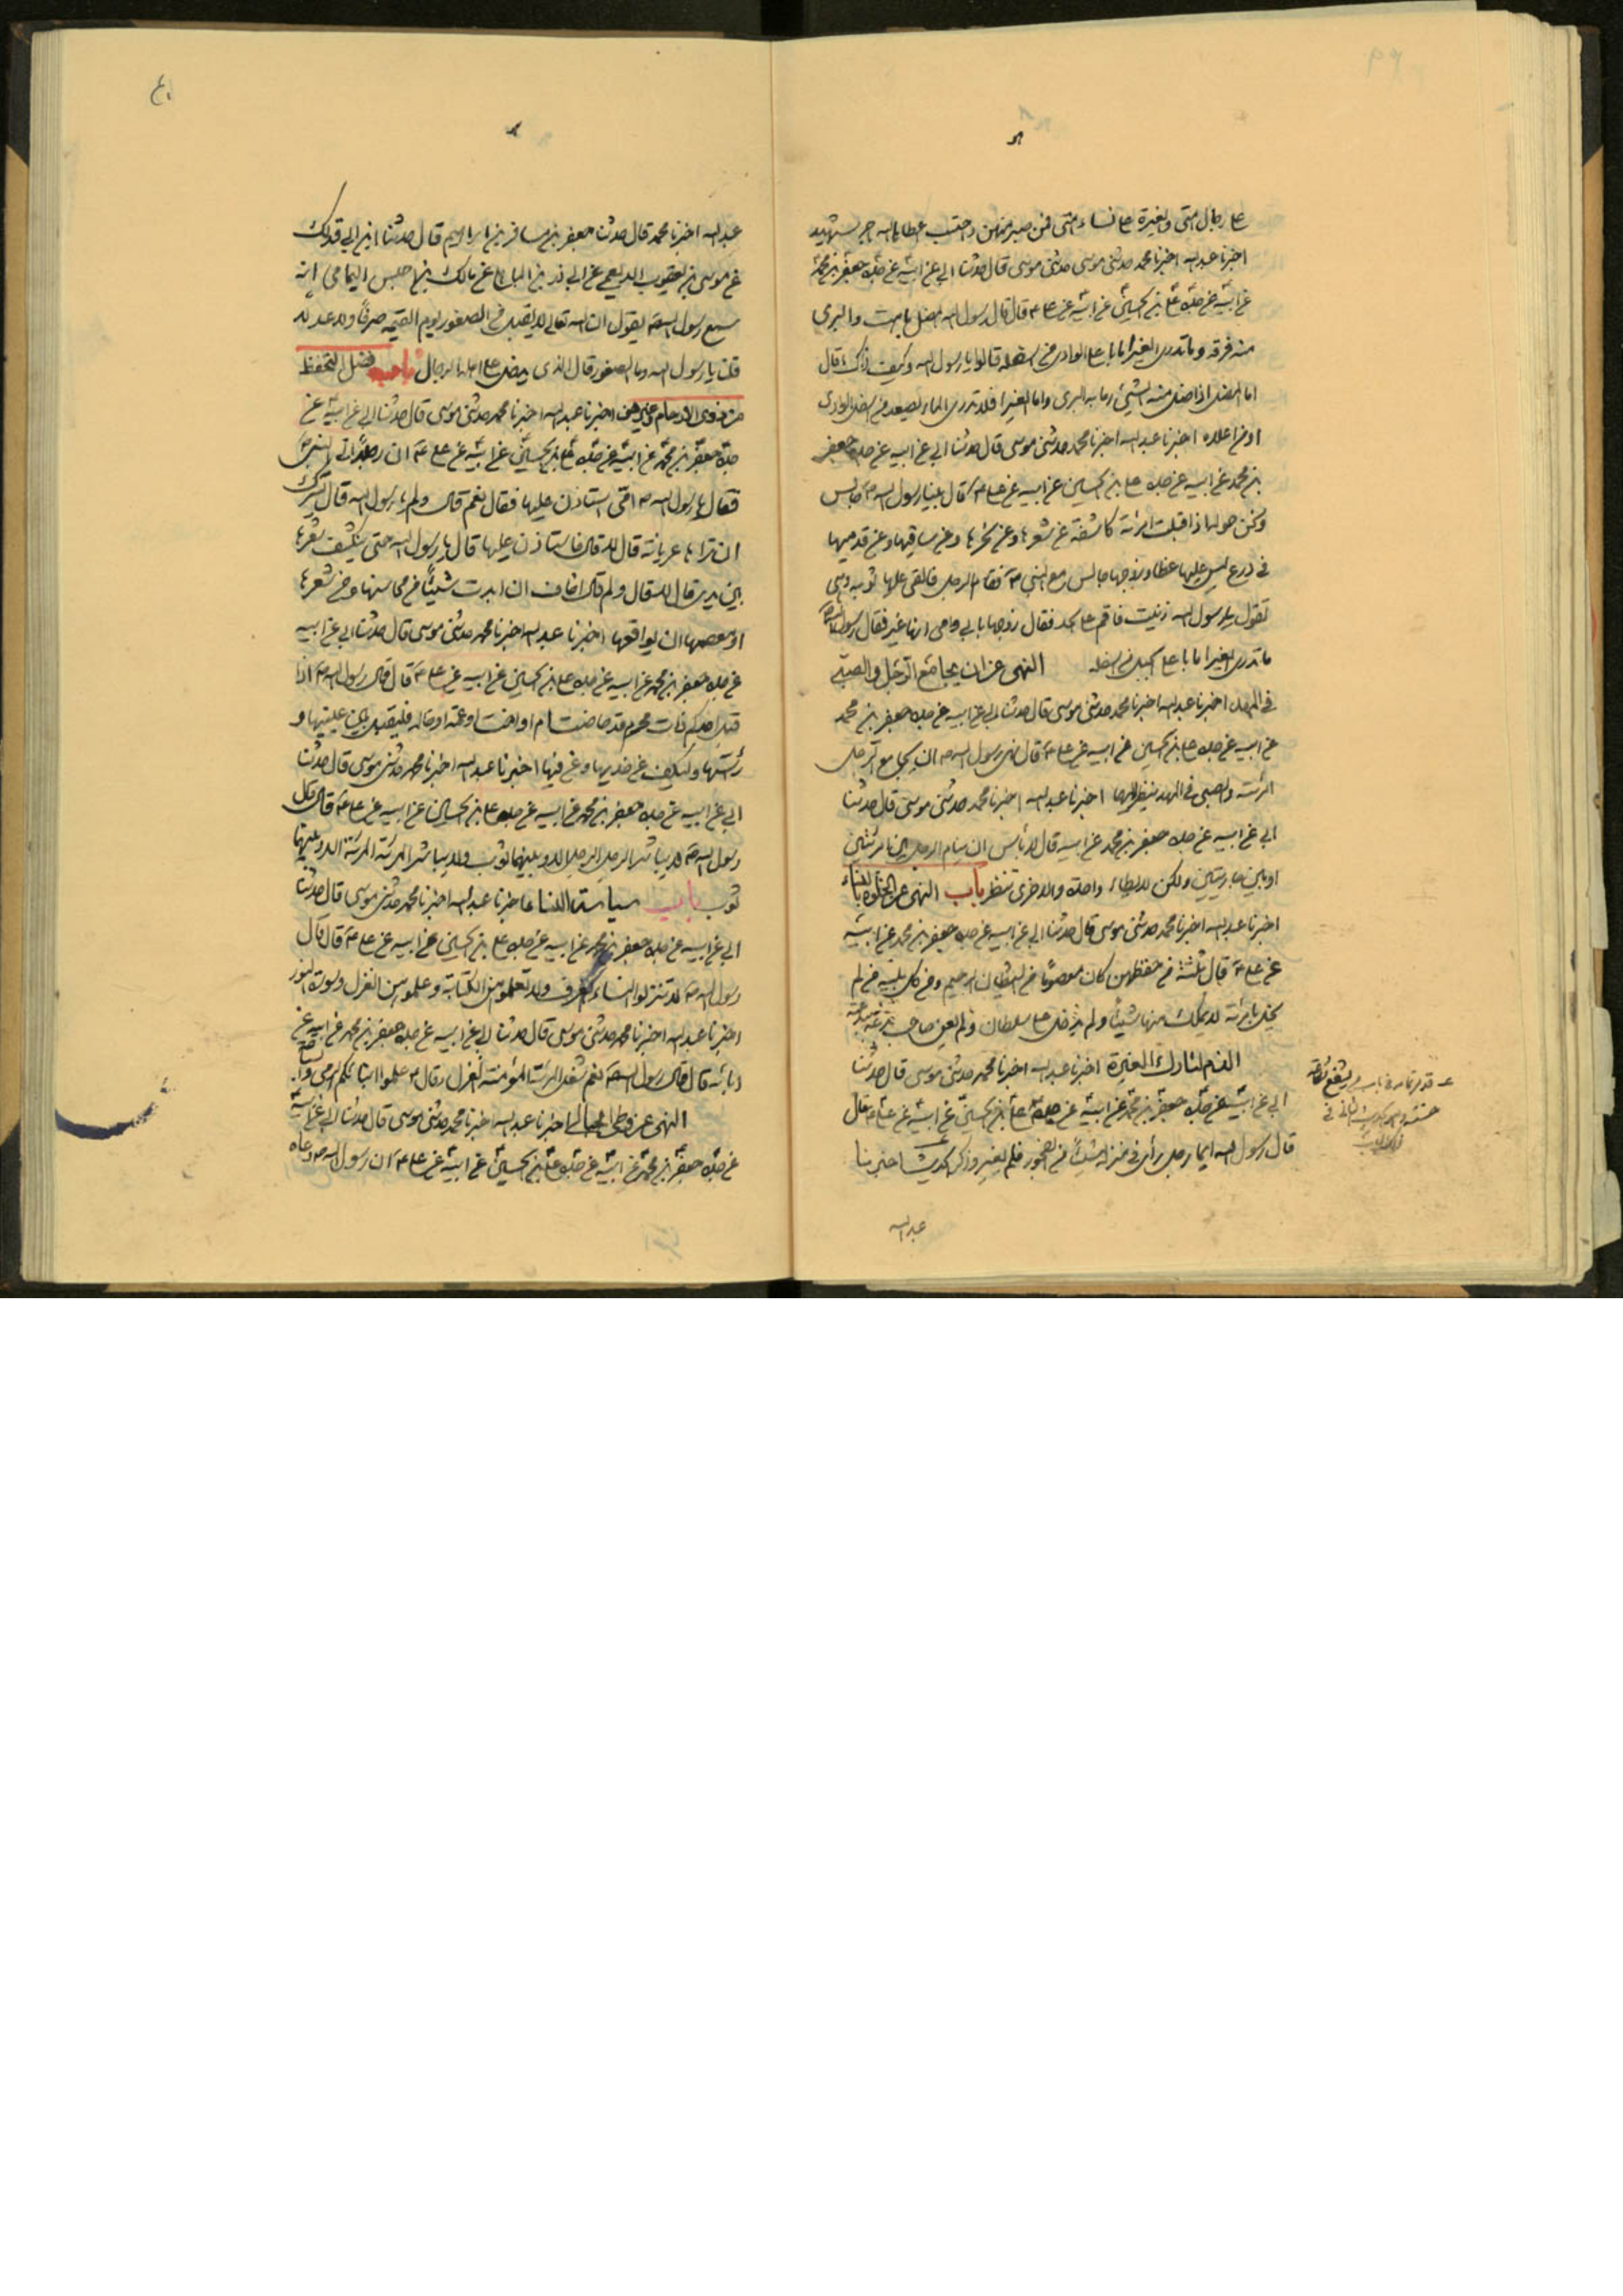 على رجال امتى والغيرة على نساء امتى فمن صبر منهن واحتسب اعطاه الله اجر شهيد
اخبرنا عبد الله اخبرنا محمد حدثنى موسى قال حدثنا ابى عن ابيه عن جده جعفر بن محمد
عن ابيه عن جده على بن الحسين عن ابيه عن على ع قال قال رسول الله
منه فرقه وما تدرى الغيرا اعلى الوادى من اسفله قالوا يا رسول الله وكيف ذلك قال
اما اذا منه الشىء واما الغيرا فلا تدرى الماء يصعد من اسفل الوادى
او من اعلاه اخبرنا عبد الله اخبرنا محمد حدثنى موسى قال حدثنا ابى عن ابيه عن جده جعفر
بن محمد عن ابيه عن جده على بن الحسين عن ابيه عن على ع قال بينا رسول الله ص جالس
ونحن حوله اذا قبلت امرئة كاشفة عن شعرها وعن نحرها وعن ساقيها وعن قدميها
فى درع ليس عليها غطا وزوجها جالس مع النبى ص فقام الرجل فالقى عليها ثوبه وهى
تقول يا رسول الله زنيت فاقم على الحد فقال زوجها بابى وامى انها غيرا فقال رسول الله ص
ما تدرى الغيرا اعلى الجبل من اسفله النهى عن ان يجامع الرجل والصبى
فى المهد اخبرنا عبد الله اخبرنا محمد حدثنى موسى قال حدثنا ابى عن ابيه عن جده جعفر بن محمد
عن ابيه عن جده على بن الحسين عن ابيه عن على ع قال نهى رسول الله ص ان يجامع الرجل
امرئته والصبى فى المهد ينظر اليهما اخبرنا عبد الله اخبرنا محمد حدثنى موسى قال حدثنا
ابى عن ابيه عن جده جعفر بن محمد عن ابيه قال لا بأس ان ينام الرجل بين امرئتين
او بين جاريتين ولكن لا يطاء واحدة والاخرى تنظر باب النهى عن الخلوة بالنساء
اخبرنا عبد الله اخبرنا محمد حدثنى موسى قال حدثنا ابى عن ابيه عن جده جعفر بن محمد عن ابيه
عن على ع قال ثلثة من حفظهن كان معصوما من الشيطان الرجيم ومن كل بلية من لم
يخل بامرئة لا يملك منها شيئا ولم يدخل على سلطان ولم يعن صاحب بدعة ببدعته
الذم لتارك الغيرة اخبرنا عبد الله اخبرنا محمد حدثنى موسى قال حدثنا
ابى عن ابيه عن جده جعفر بن محمد عن ابيه عن جده على بن الحسين عن ابيه عن على ع قال
قال رسول الله ايما رجل رأى فى منزله شيئا من الفجور فلم يغير اخبرنا
عبد الله
عبد الله اخبرنا محمد قال حدثنا جعفر بن مسافر بن ابراهيم قال حدثنا ابن ابى فديك
عن موسى بن يعقوب عن ابى عن مالك بن اليمامى انه
سمع رسول الله ص يقول ان الله تعالى لا يقبل من الصقور يوم القيمة صرفا ولا عدلا
قلت يا رسول الله وما الصقور قال الذى يدخل على اهله الرجال باب فضل التحفظ
من ذوى الارحام اخبرنا عبد الله اخبرنا محمد حدثنى موسى قال حدثنا ابى عن ابيه عن
جده جعفر بن محمد عن ابيه عن جده على بن الحسين عن ابيه عن على ع ان رجلا اتى النبى ص
فقال يا رسول الله ص امى استاذن عليها فقال نعم قال ولم يا رسول الله قال ايسرك
ان تراها عريانة قال لا قال فاستاذن عليها قال يا رسول الله حتى تكشف شعرها
بين يدى قال لا قال ولم قال اخاف ان ابدت شيئا من محاسنها ومن شعرها
او معصمها ان يواقعها اخبرنا عبد الله اخبرنا محمد حدثنى موسى قال حدثنا ابى عن ابيه
عن جده جعفر بن محمد عن ابيه عن جده على بن الحسين عن ابيه عن على ع قال قال رسول الله ص اذا
قبل احدكم ذات محرم قد حاضت ام او اخت او عمة او خالة فليقبل بين عينيها و
رأسها وليكف عن خديها وعن فيها اخبرنا عبد الله اخبرنا محمد حدثنى موسى قال حدثنا
ابى عن ابيه عن جده جعفر بن محمد عن ابيه عن جده على بن الحسين عن ابيه عن على ع قال قال
رسول الله ص لا يباشر الرجل الرجل الا وبينهما ثوب ولا يباشر المرئة المرئة الا وبينهما
ثوب باب سياسة النساء اخبرنا عبد الله اخبرنا محمد حدثنى موسى قال حدثنا
ابى عن ابيه عن جده جعفر بن محمد عن ابيه عن جده على بن الحسين عن ابيه عن على ع قال قال
رسول الله ص لا تنزلوا النساء الغرف ولا تعلموهن الكتابة وعلموهن الغزل وسورة النور
اخبرنا عبد الله اخبرنا محمد حدثنى موسى قال حدثنا ابى عن ابيه عن جده جعفر بن محمد عن ابيه عن
ابائه قال قال رسول الله ص نعم شغل المرئة المؤمنة الغزل وقال ص علموا ابنائكم الرمى
النهى عن وطى الحبالى اخبرنا عبد الله اخبرنا محمد حدثنى موسى قال حدثنا ابى عن ابيه
عن جده جعفر بن محمد عن ابيه عن جده على بن الحسين عن ابيه عن على ع ان رسول الله ص